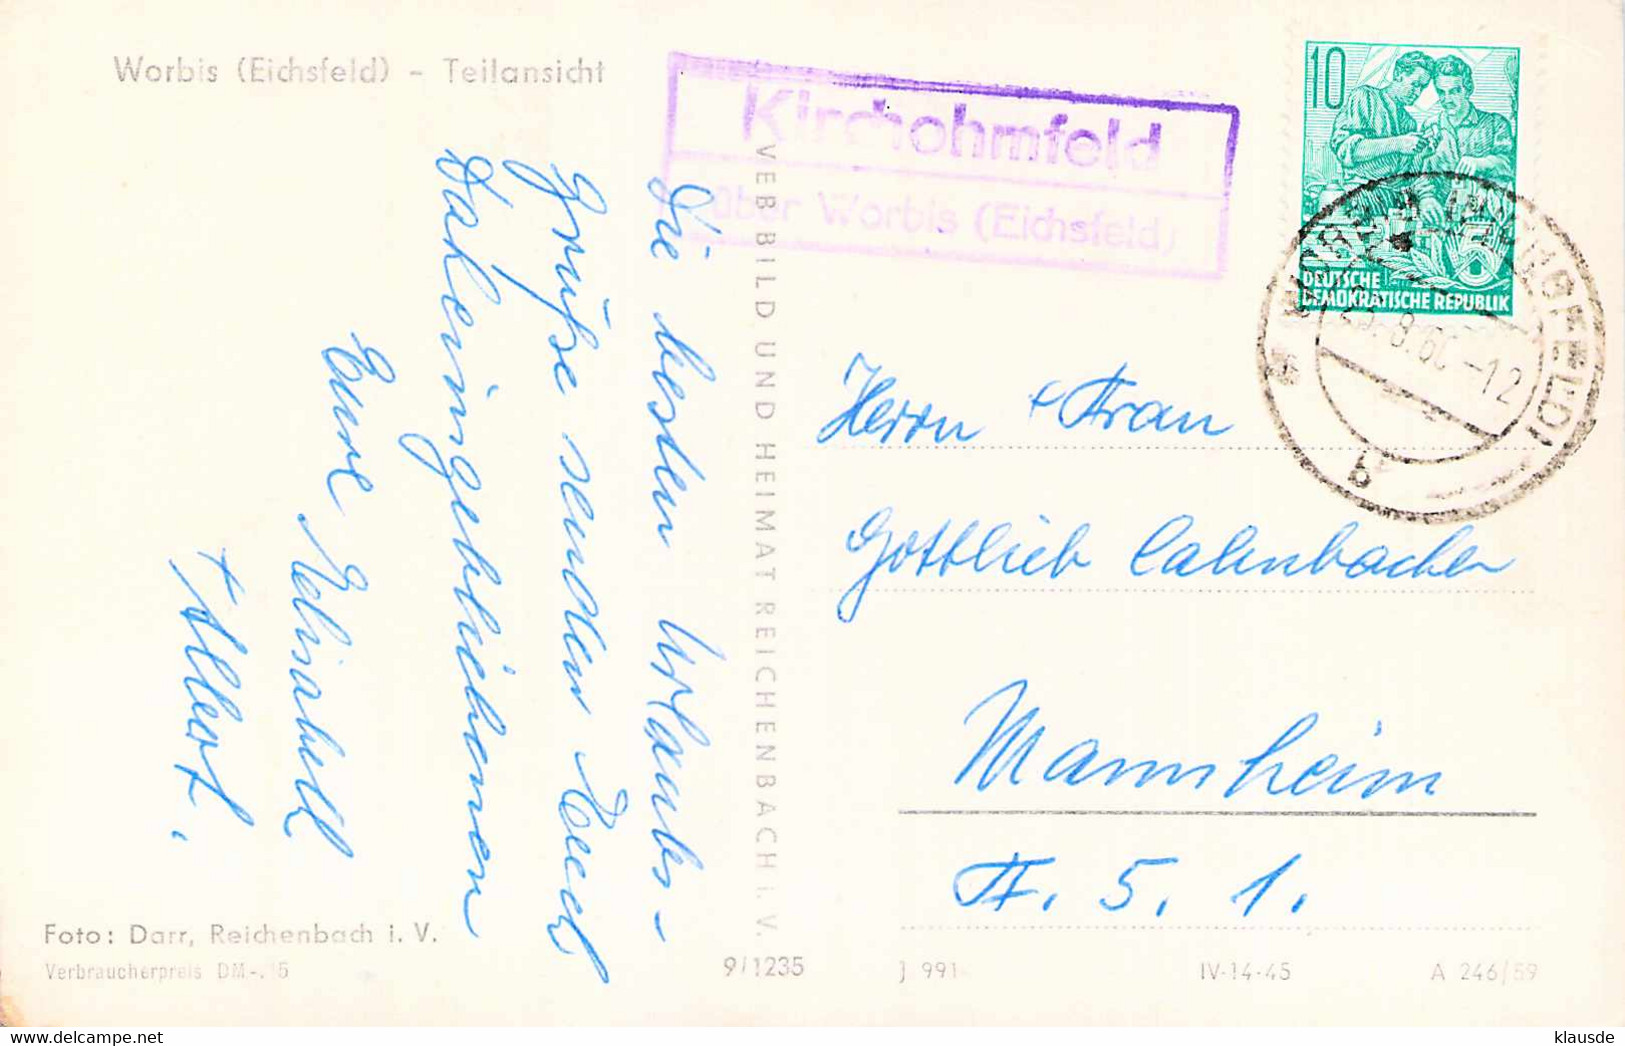 Worbis (Eichsfeld) - Teilansicht
Kirchohmfeld
über Worbis (Eichsfeld)
10
DEUTSCHE
DEMOKRATISCHE REPUBLIK
8.60-12
b
Die besten Urlaubs-
grüße senden Euch
Daheimgebliebenen
Eure Elisabeth
+ Albert.
VEB BILD UND HEIMAT REICHENBACH i. V.
Herrn + Frau
Gottlieb
Mannheim
5. 1.
Foto: Darr, Reichenbach i. V.
Verbraucherpreis DM
9/1235
J 991
IV-14-45
A 246/59
klausde